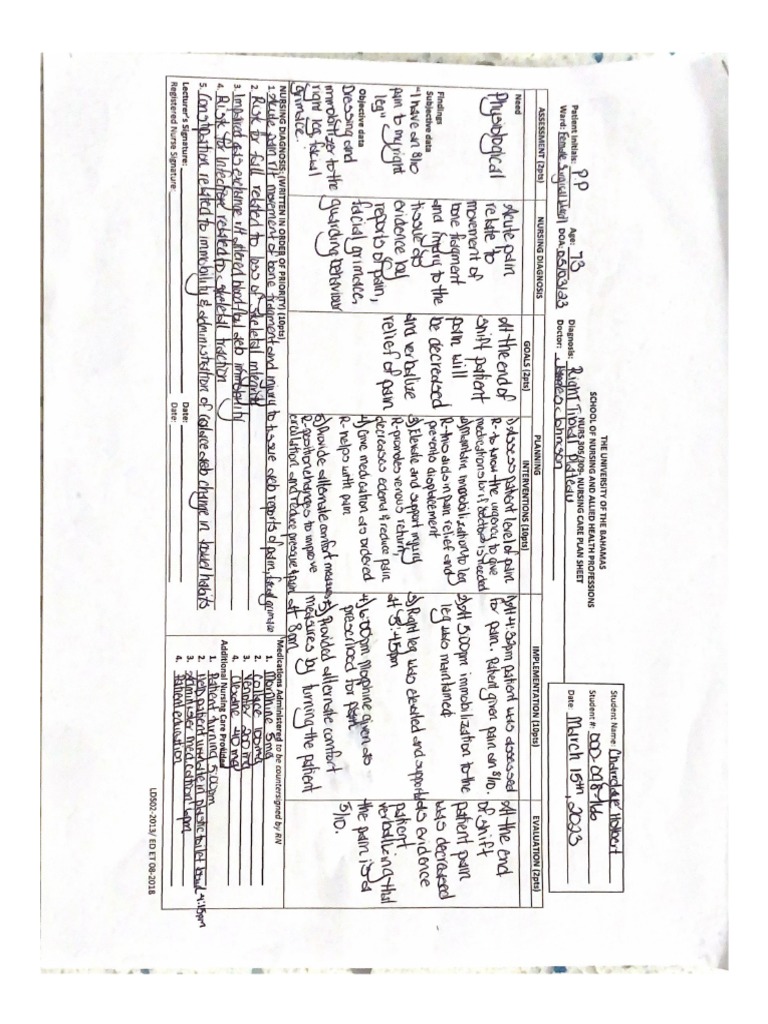 THE UNIVERSITY OF THE BAHAMAS
SCHOOL OF NURSING AND ALLIED HEALTH PROFESSIONS
NURS 305/309- NURSING CARE PLAN SHEET
Student Name:
Student #: 000-098766
Date: March 15th, 2023
Patient Initials: P.P Age: 73 Diagnosis: Right Tibial Plateau
Ward: Female Surgical DOA: 05/03/23 Doctor: Johnson
ASSESSMENT (2pts)
Need
Physiological
Findings
Subjective data
"I have an 8/10
pain to my right
leg"
Objective data
Dressing and
immobilizer to the
right leg, facial
grimace.
NURSING DIAGNOSIS
Acute pain
relate to
movement of
bone fragment
and injury to the
tissue as
evidence by
reports of pain,
facial grimace,
guarding behaviour
PLANNING
GOALS (2pts)
At the end of
shift patient
pain will
be decreased
and verbalize
relief of pain
INTERVENTIONS (10pts)
1) Assess patient level of pain
R- to know the urgency to give
medications or if is needed
2) maintain immobilization to leg
R- this aids in pain relief and
prevents displacement
3) Elevate and support injury
R- promotes venous return,
decreases edema & reduce pain
4) Give medication as ordered
R- helps with pain
5) Provide alternate comfort measures
R- position changes to improve
circulation and reduce pressure & pain
IMPLEMENTATION (10pts)
1) At 4:32pm patient was assessed
for pain. Patient given pain an 8/10.
2) At 5:00pm immobilization to the
leg was maintained
3) Right leg was elevated and supported
at 5:45pm
4) 6:00pm Morphine given as
prescribed for pain
5) Provided alternate comfort
measures by turning the patient
at 8pm
EVALUATION (2pts)
At the end
of shift
patient pain
was decreased
as evidence
patient
verbalizing that
the pain is a
5/10.
NURSING DIAGNOSIS: (WRITTEN IN ORDER OF PRIORITY) (10pts)
1. Acute pain r/t movement of bone fragment and injury to tissue aeb reports of pain, facial grimace
2. Risk for fall related to loss of skeletal integrity
3. Impaired gas exchange r/t altered blood flow aeb immobility
4. Risk for infection related to skeletal traction
5. Constipation related to immobility & administration of colace aeb change in bowel habits
Lecturer's Signature: Date:
Registered Nurse Signature: Date:
Medications Administered to be countersigned by RN
1. Morphine 5mg
2. Colace 100mg
3. 200mg
4. Clexane 40mg
Additional Nursing Care Provided
1. Patient turning 5:00pm
2. Help patient urinate in plastic toilet bowl 4:15pm
3. administer medication 6pm
4. Patient education
LDS02-2013/ ED ET 08-2018